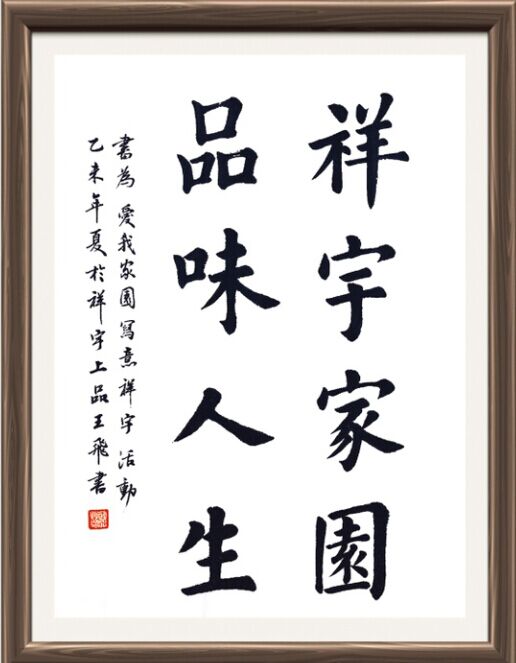 祥宇家園
品味人生
書為愛我家園寫意祥宇活動
乙未年夏於祥宇上品王飛書